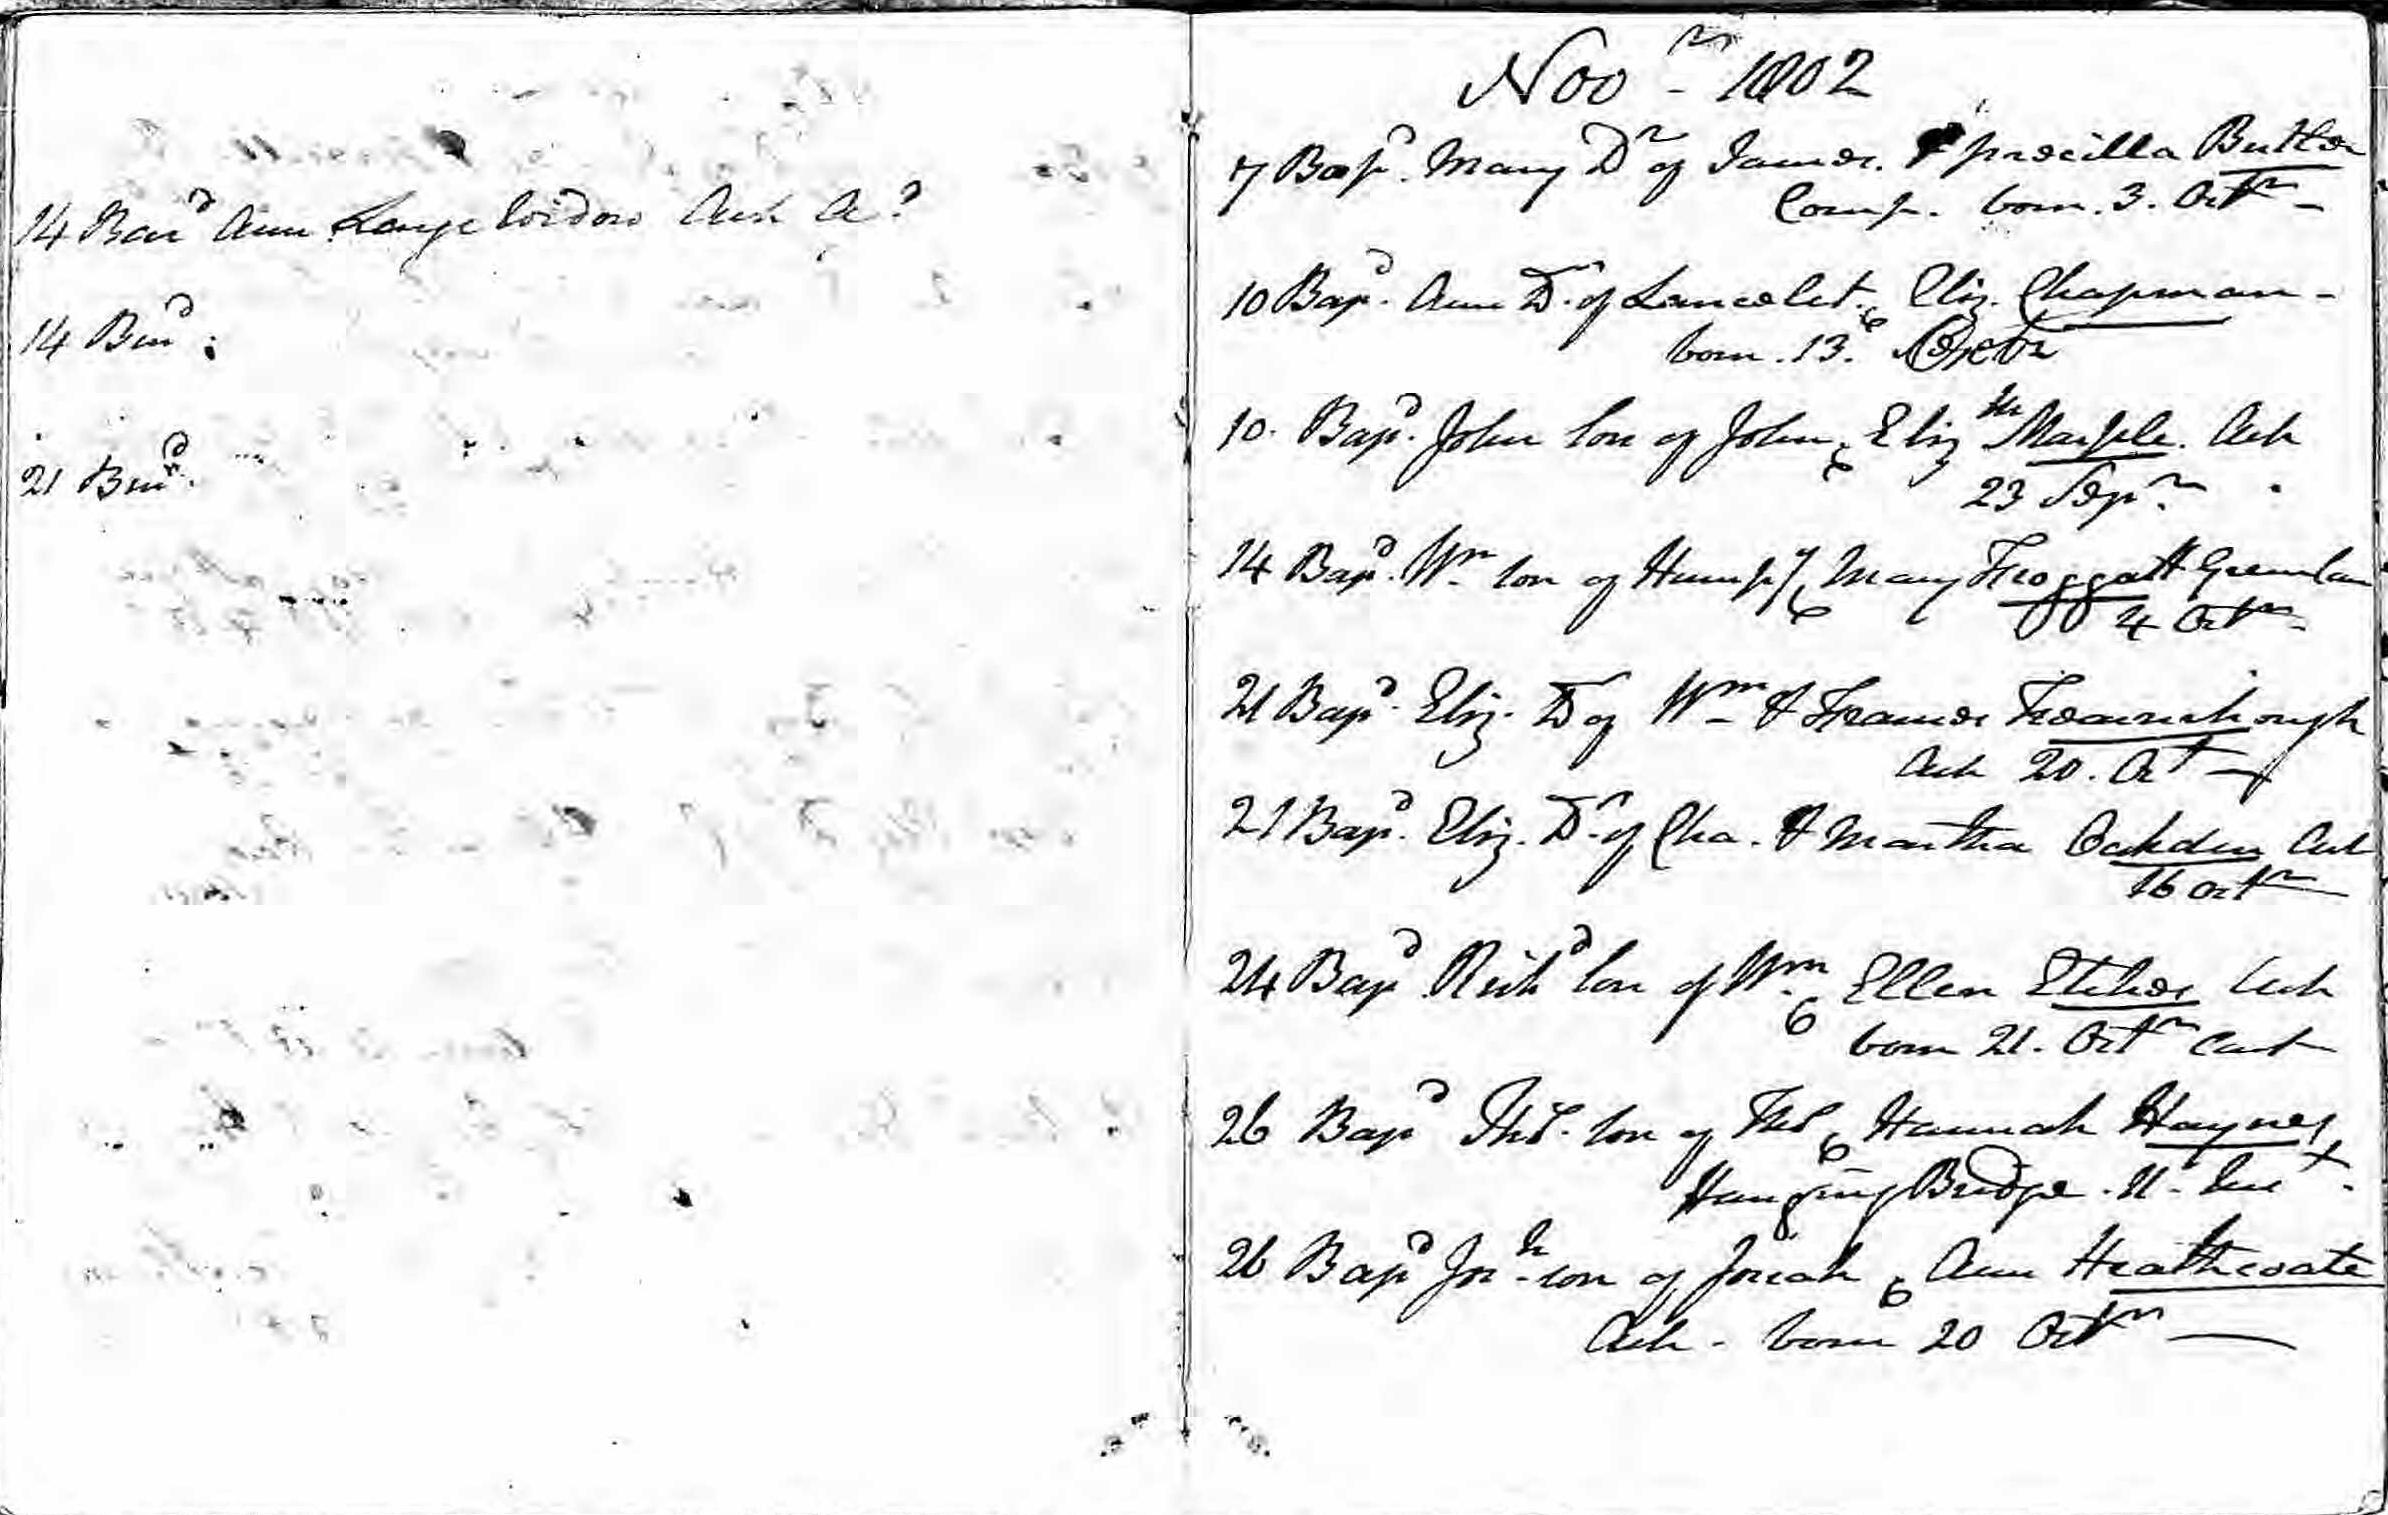 14 Bur^d Ann Large Widow Ash A?
14 Bur^d.
21 Bur^d.
Nov^r 1802
7 Bap^d. Mary D^r of James & priscilla Butler
Comp. born. 3. Oct^r
10 Bap^d. Ann D^r of Lancelet & Eliz. Chapman -
born. 13.
10. Bap^d. John son of John & Eliz^th Marple. Ash
23 Sep^r.
14 Bap^d. W^m son of Hump^y & Mary Froggatt Greenlan
4 Oct^r
21 Bap^d. Eliz. D^r of W^m & Frances Fearnihough
Ash 20. Oct
21 Bap^d. Eliz. D^r of Cha. & Martha Oakden Ash
16 Oct^r
24 Bap^d Rich^d son of W^m & Ellen Etches Ash
born 21. Oct^r
26 Bap^d Tho^s. son of Tho^s & Hannah Haynes,
Hanging Bridge.
26 Bap^d Jos^h son of Josiah & Ann Heathcoate
Ash - born 20 Oct^r